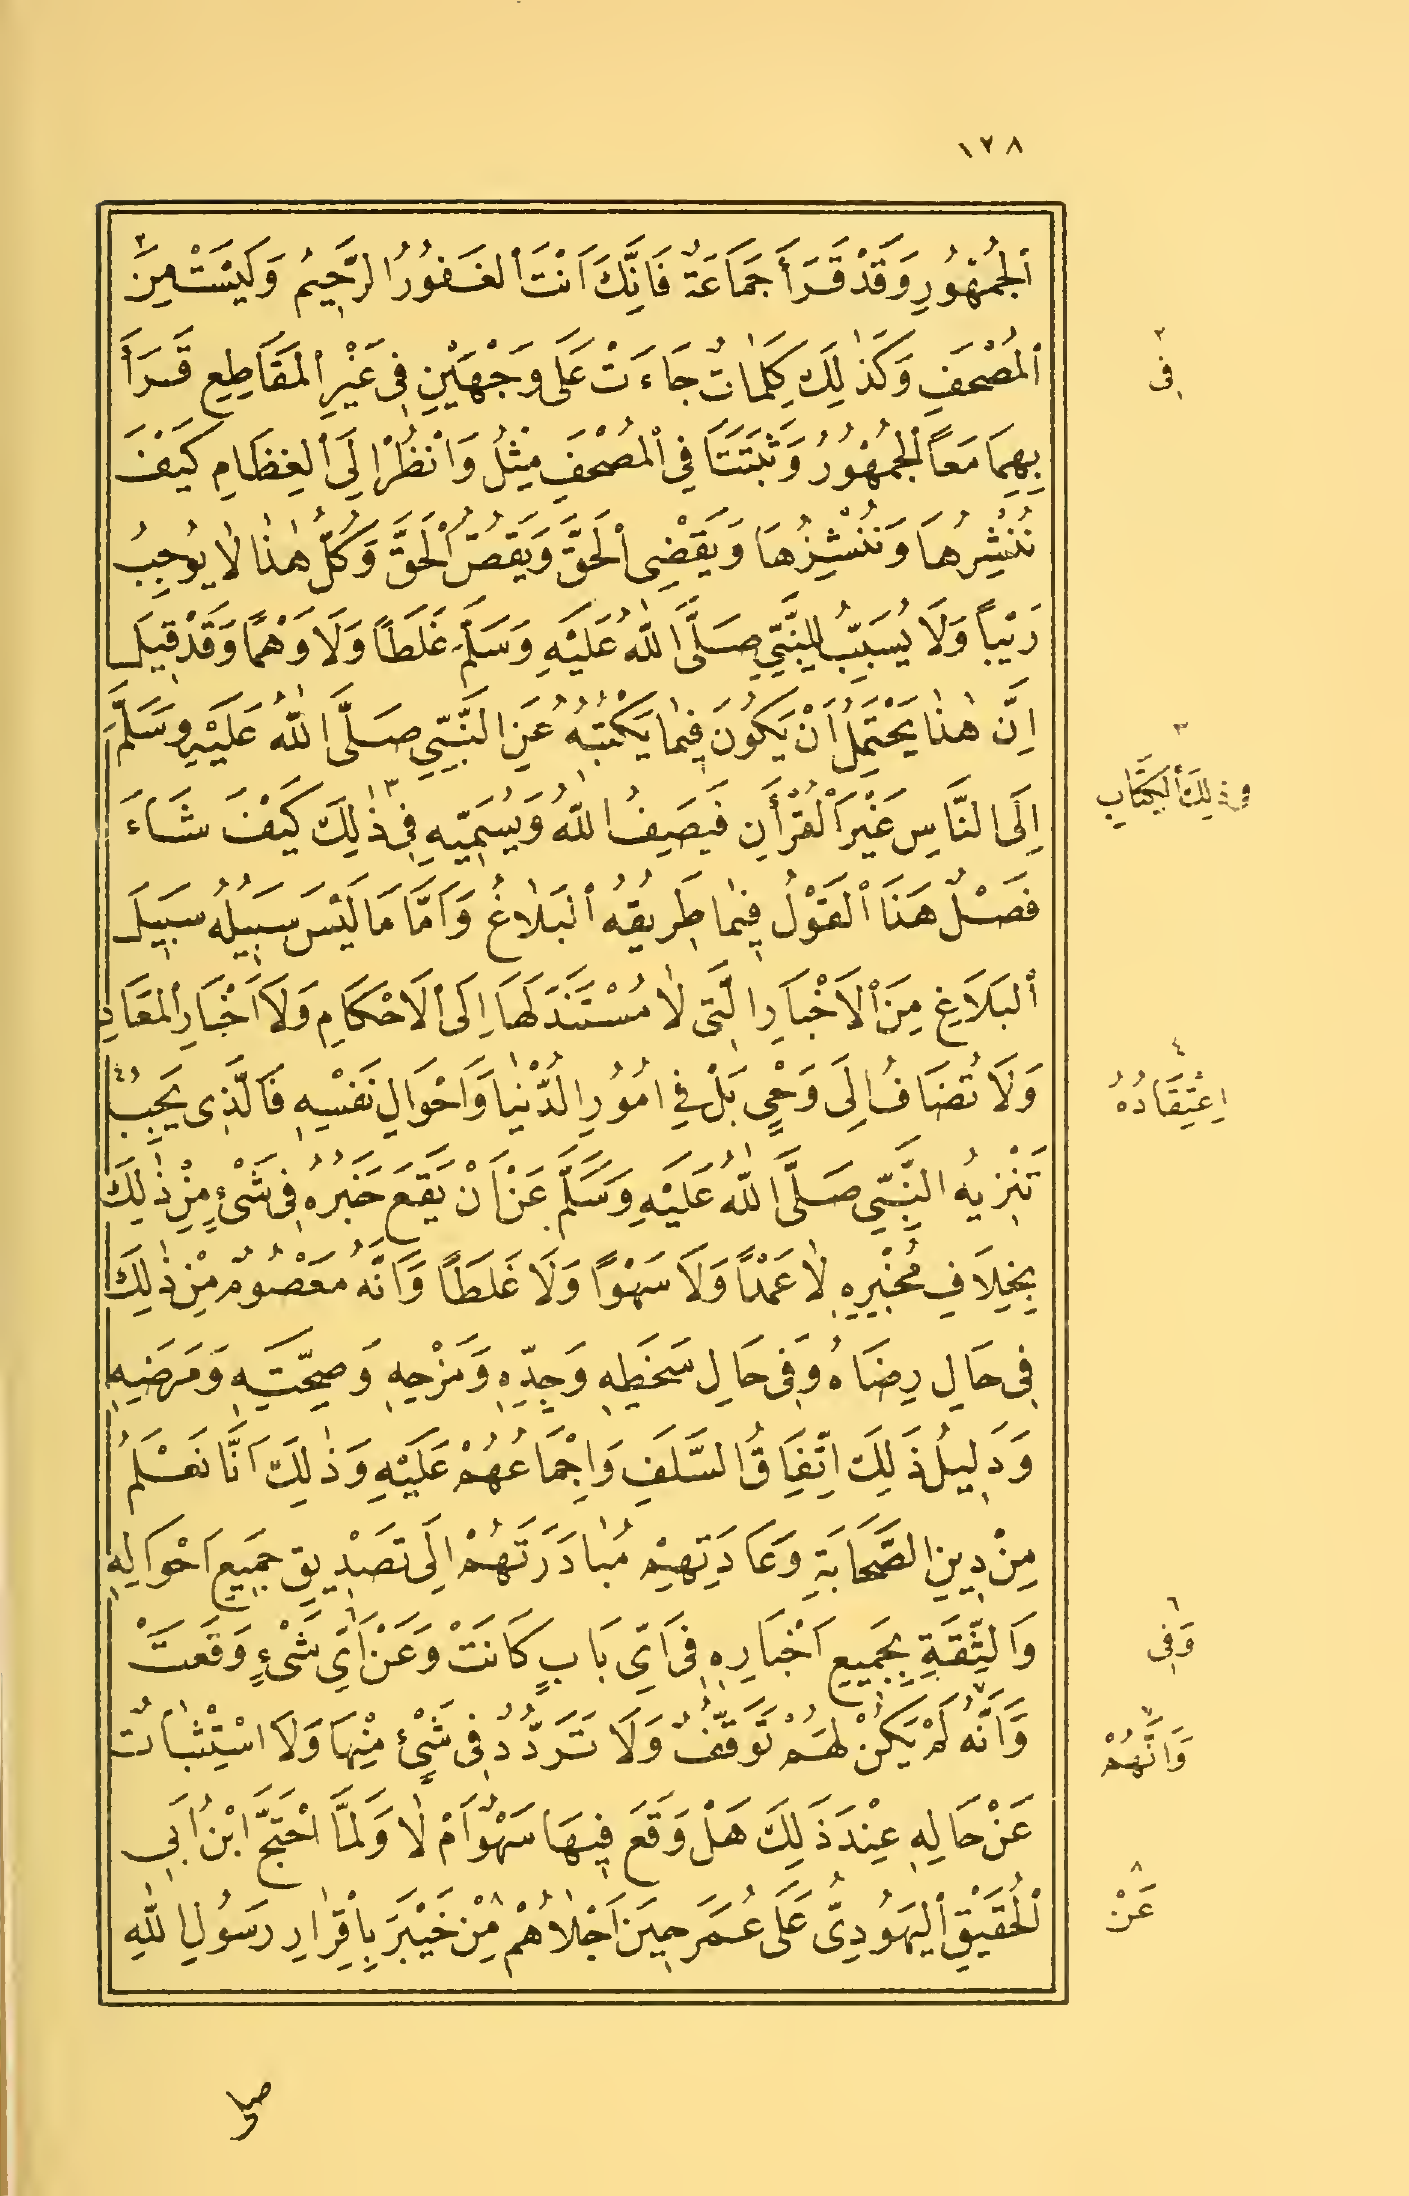 ١٢٨
اَلْجُمْهُورِ وَقَدْ قَرَأَ جَمَاعَةٌ فَاِنَّكَ اَنْتَ الْغَفُورُ الرَّحِيمُ وَلَيْسَتْ مِنَ٢
الْمُصْحَفِ وَكَذٰلِكَ كَلِمَاتٌ جَاءَتْ عَلَى وَجْهَيْنِ فِي غَيْرِ الْمَقَاطِعِ قَرَأَ
بِهِمَا مَعًا الْجُمْهُورُ وَثَبَتَتَا فِي الْمُصْحَفِ مِثْلُ وَانْظُرْ اِلَى الْعِظَامِ كَيْفَ
نُنْشِرُهَا وَنُنْشِزُهَا وَيَقْضِى الْحَقَّ وَيَقُصُّ الْحَقَّ وَكُلُّ هٰذٰا لٰا يُوجِبُ
رَيْبًا وَلَا يُسَبِّبُ لِلنَّبِيِّ صَلَّى اللّٰهُ عَلَيْهِ وَسَلَّمَ غَلَطًا وَلَا وَهْمًا وَقَدْ قِيلَ
اِنَّ هٰذٰا يَحْتَمِلُ اَنْ يَكُونَ فِيمٰا يَكْتُبُهُ عَنِ النَّبِيِّ صَلَّى اللّٰهُ عَلَيْهِ وَسَلَّمَ
اِلَى النَّاسِ غَيْرَ الْقُرْأَنِ فَيَصِفُ اللّٰهَ وَيُسَمِّيهِ فِي١٣ ذٰلِكَ كَيْفَ شَاءَ
فَصْلٌ هَذَا الْقَوْلُ فِيمٰا طَرِيقُهُ الْبَلٰاغُ وَاَمَّا مَا لَيْسَ سَبِيلُهُ سَبِيلَ
الْبَلَاغِ مِنَ الْاَخْبَارِ الَّتِى لٰا مُسْتَنَدَ لَهَا اِلَى الْاَحْكَامِ وَلَا اَخْبَارِ الْمَعَادِ
وَلَا تُضَافُ اِلَى وَحْيٍ بَلْ فِي اُمُورِ الدُّنْيٰا وَاَحْوَالِ نَفْسِهِ فَالَّذِى يَجِبُ٤
تَنْزِيهُ النَّبِيِّ صَلَّى اللّٰهُ عَلَيْهِ وَسَلَّمَ عَنْ اَنْ يَقَعَ خَبَرُهُ فِى شَىْءٍ مِنْ ذٰلِكَ
بِخِلَافِ مُخْبَرِهِ لٰا عَمْدًا وَلَا سَهْوًا وَلَا غَلَطًا وَاَنَّهُ مَعْصُومٌ مِنْ ذٰلِكَ
فِى حَالِ رِضَاهُ وَفِى حَالِ سَخَطِهِ وَجِدِّهِ وَمَزْحِهِ وَصِحَّتِهِ وَمَرَضِهِ
وَدَلِيلُ ذَلِكَ اتِّفَاقُ السَّلَفِ وَاِجْمَاعُهُمْ عَلَيْهِ وَذٰلِكَ اَنَّا نَعْلَمُ
مِنْ دِينِ الصَّحَابَةِ وَعَادَتِهِمْ مُبٰادَرَتَهُمْ اِلَى تَصْدِيقِ جَمِيعِ اَحْوَالِهِ
وَالثِّقَةِ بِجَمِيعِ اَخْبَارِهِ فِى اَىِّ بَابٍ كَانَتْ وَعَنْ٦ اَيِّ شَىْءٍ وَقَعَتْ
وَاَنَّهُ٧ لَمْ يَكُنْ لَهُمْ تَوَقُّفٌ وَلَا تَرَدُّدٌ فِى شَيْءٍ مِنْهَا وَلَا اسْتِثْبٰاتٌ
عَنْ حَالِهِ عِنْدَ ذَلِكَ هَلْ وَقَعَ فِيهَا سَهْوٌ اَمْ لٰا وَلَمَّا احْتَجَّ ابْنُ اَبِي
الْحُقَيْقِ الْيَهُودِىُّ عَلَى عُمَرَ حِينَ اَجْلٰاهُمْ٨ مِنْ خَيْبَرَ بِاِقْرٰارِ رَسُولِ اللّٰهِ
٢
فِى
٣
فِى ذٰلِكَ الْكِتَابِ
٤
اِعْتِقَادُهُ
٦
وَفِى
٧
وَاَنَّهُمْ
٨
عَنْ
صلى